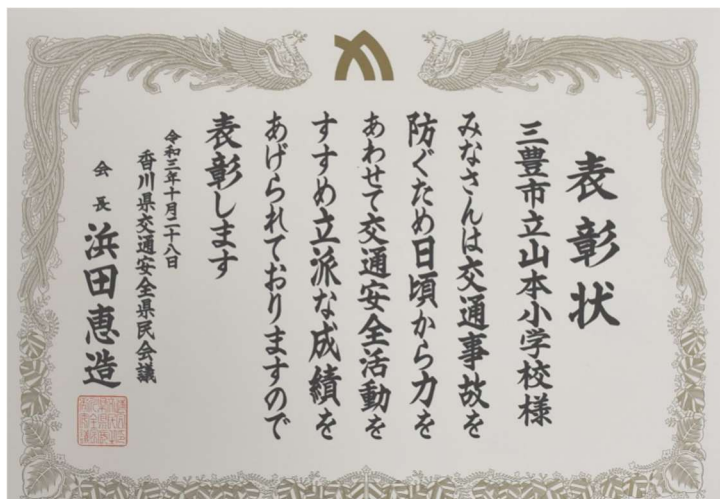 表彰状
三豊市立山本小学校様
みなさんは交通事故を
防ぐため日頃から力を
あわせて交通安全活動を
すすめ立派な成績を
あげられておりますので
表彰します
令和三年十月二十八日
香川県交通安全県民会議
会長 浜田恵造